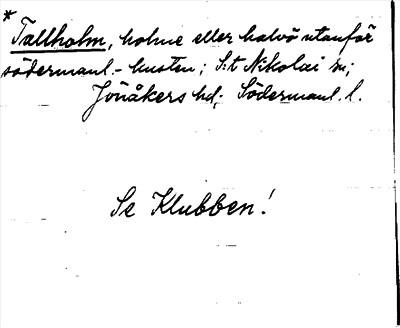 *
Tallholm, holme eller halvö utanför
södermanl.- kusten; S:t Nikolai sn;
Jönåkers hd; Södermanl. l.
Se Klubben!